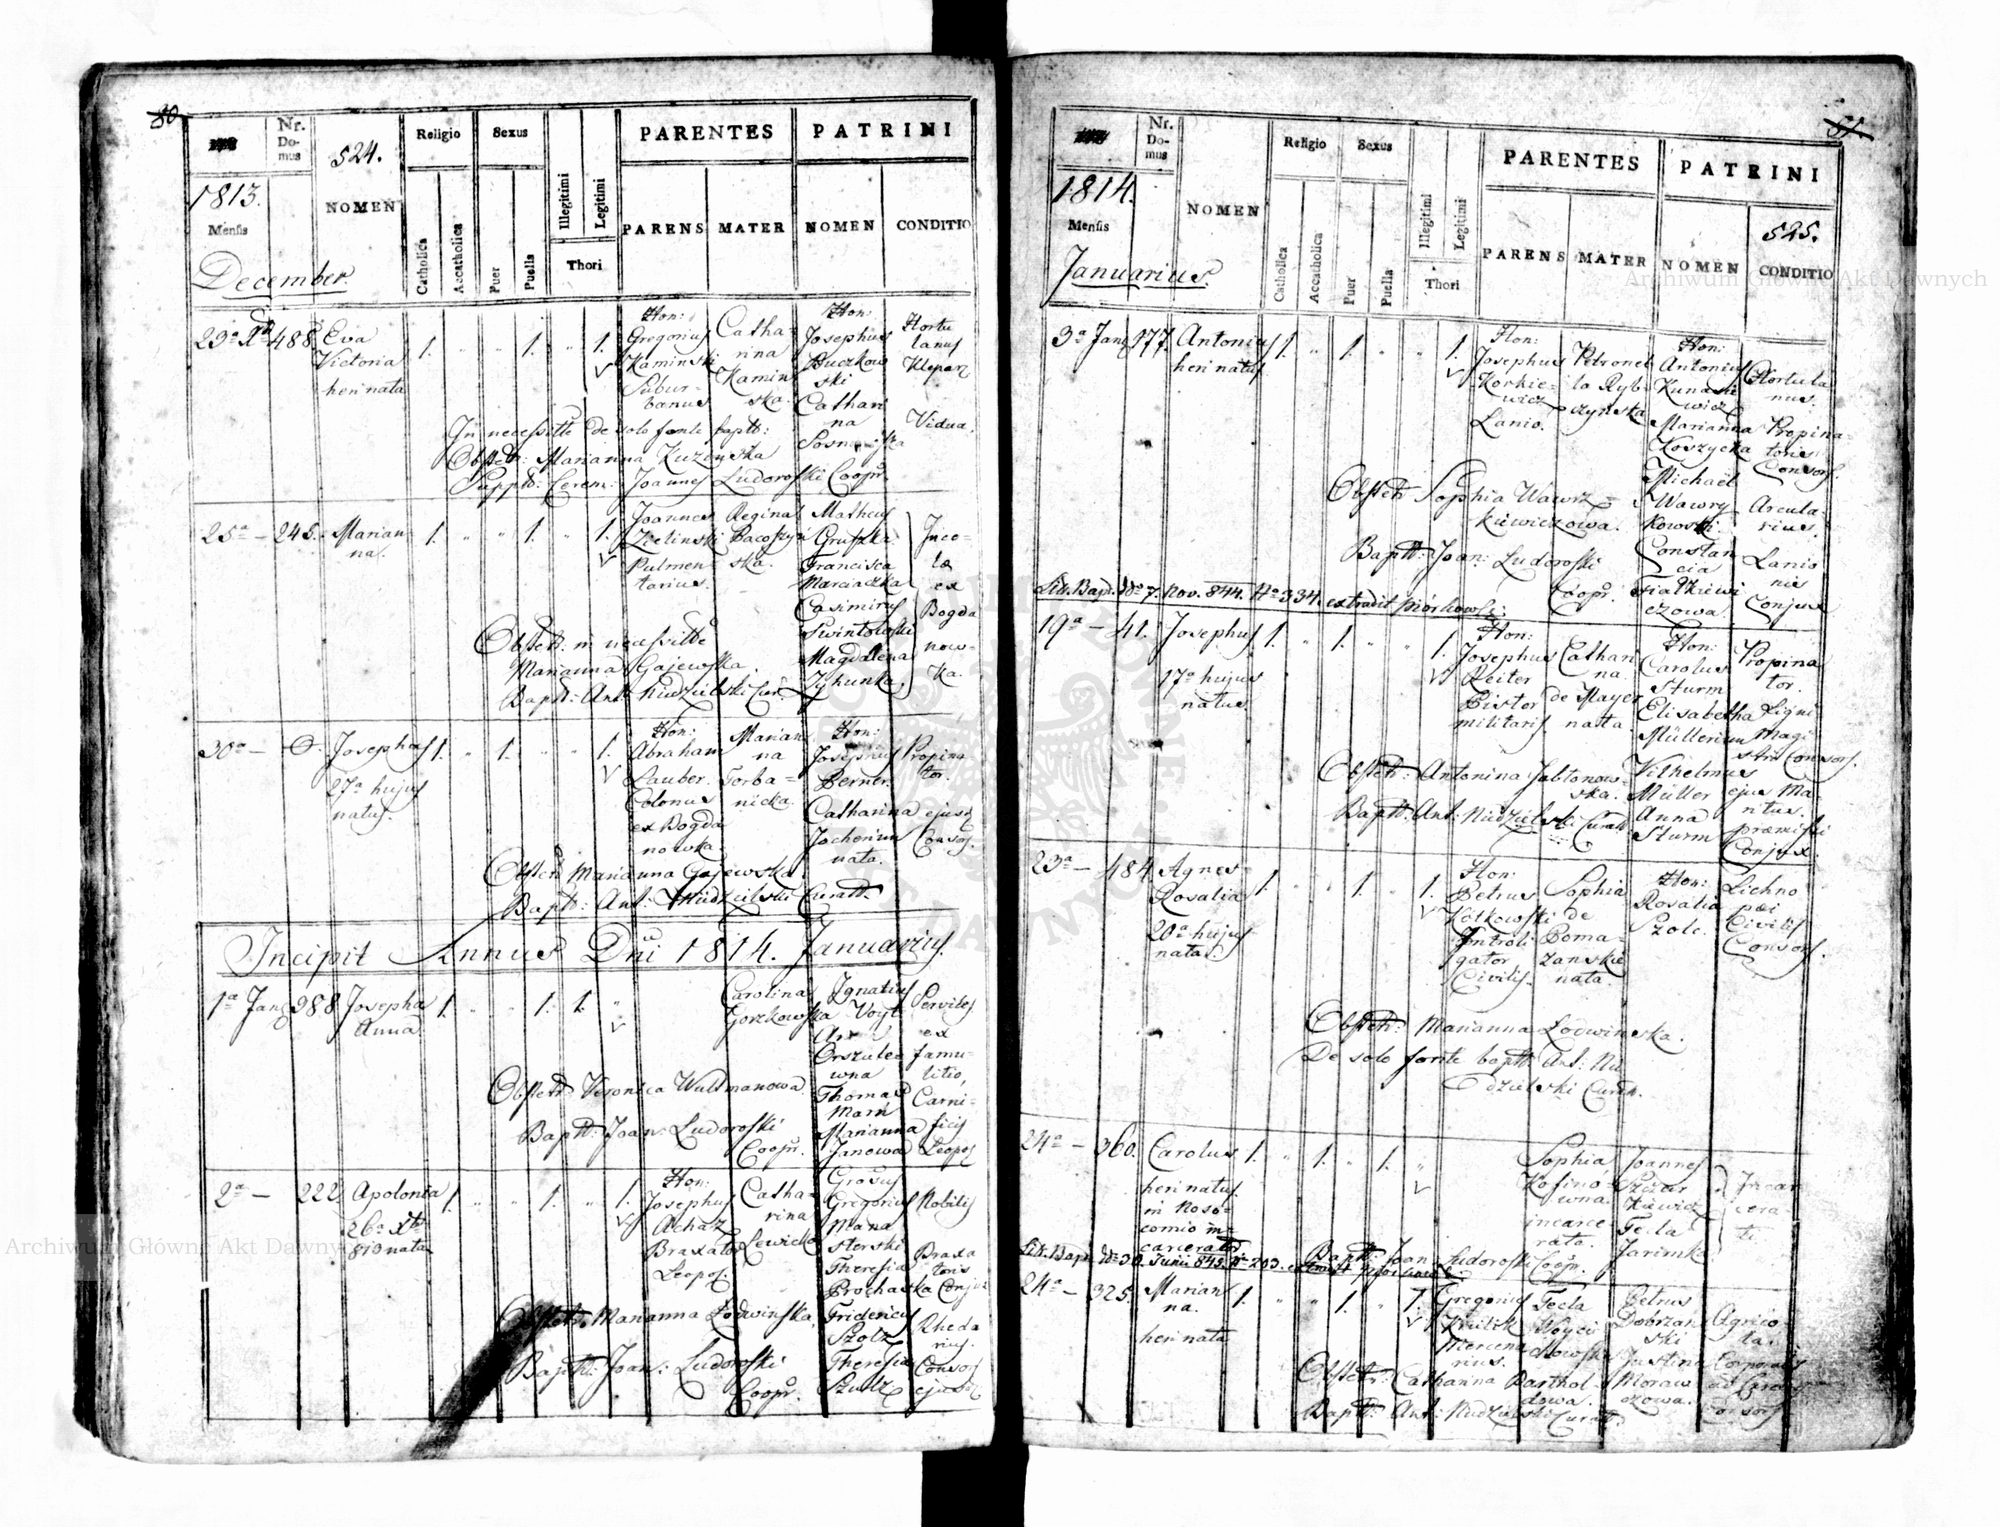 80
Nr. Domus
524.
NOMEN
Religio
Catholica
Accatholica
Sexus
Puer
Puella
Illegitimi
Legitimi
Thori
PARENTES
PARENS
MATER
PATRINI
NOMEN
CONDITIO
1813.
Mensis
December.
23a Xb
488.
Eva
Victoria
heri nata
1.
1.
1.
Hon:
Gregorius
Kaminski
Subur-
banus
Catha-
rina
Kamin
ska.
Hon
Josephus
Buczkow
ski
Cathari
na
Hortu
lanus
Klepar
Vidua.
In necessitte de solo fonte bapt:
Obstet: Marianna
Supplt: Cerem: Joannes Ludoroski Coopr.
25a —
245.
Marian
na.
1.
1.
1.
Joannes
Zielinski
Pulmen
tarius.
Regina
ska.
Matheus
Gruszka
Francisca
Marciaczka
Casimirus
Swintoloski
Magdalena
Inco-
læ
ex
Bogda
now-
ka.
Obstet. in necessitte
Marianna Gajewska.
Bapt: Ant: Nudzielski Cur.
30a —
0.
Josephus
27a hujus
natus.
1.
1.
1.
Hon:
Abraham
Lauber.
Colonus
ex Bogda
nowka.
Marian
na
Torba=
nicka.
Hon:
Josephus
Berner.
Catharina
Jocherium
nata.
Propina
tor.
ejus
Consors.
Obstet Marianna Gajewska.
Bapt: Ant: Nudzielski Curatt.
Incipit Annus Dni 1814. Januarius.
1a Jan
388
Josepha
Anna.
1.
1.
1.
Carolina
Gorzkowska
Ignatius
Voyt
Orszulea
wna
Thomas
Mari
Marianna
Janowa
Serviles
ex
famu-
litio,
Carni-
ficis
Leopol
Obstet Veronica Wultmanowa
Baptt: Joan: Ludoroski
Coopr.
2a —
222
Apolonia
26a Xbr
813 nata
1.
1.
1.
Hon:
Josephus
Achaz
Braxator
Leopol.
Catha-
rina
Lewicka
Grosus
Gregorius
Mana
sterski
Theresia
Prochaska
Fridericus
Szolz
Theresia
Szultz
Nobilis
Braxa
toris
Conjux
Rheda
rius.
Consors
ejus
Obstet. Marianna Lodwinska.
Baptt: Joan: Ludoroski
Coopr.
81.
Nr. Domus
NOMEN
Religio
Catholica
Accatholica
Sexus
Puer
Puella
Illegitimi
Legitimi
Thori
PARENTES
PARENS
MATER
PATRINI
525.
NOMEN
CONDITIO
1814.
Mensis
Januarius.
3a Jan
177.
Antonius
heri natus
1.
1.
1.
Hon:
Josephus
Korkie-
wicz
Lanio.
Petronel
la Ryb
czynska
Hon:
Antonius
Kunasie
wicz
Marianna
Koszycka
Michaël
Wawry
kowski
Constan
cia
Fiałkiewi
czowa.
Hortula
nus.
Propina-
toris
Consors.
Arcula-
rius.
Lanio
nis
Conjux
Obstet Sophia Wawrz=
kiewiczowa.
Baptt: Joan: Ludoroski
Coopr.
Lit. Bapt. dto 7. Nov. 844. No 334. extradit Piórkowski
19a —
41.
Josephus
17a hujus
natus
1.
1.
1.
Hon:
Josephus
Reiter
Pistor
militaris
Cathari
na.
de Mayer
natta.
Hon:
Carolus
Sturm
Elisabetha
Müllerium
Vilhelmus
Müller
Anna
Sturm
Propina
tor.
Ligni
Magi
stri Consors.
ejus Ma-
ritus.
præmissi
Conjux.
Obstet: Antonina Jabłonow-
ska.
Baptt: Ant: Nudzielski Curatt
23a —
484
Agnes
Rosalia
20a hujus
nata.
1.
1.
1.
Hon:
Petrus
Kotkowski
Introli
gator
Civilis.
Sophia
de
Poma-
zanskie
nata.
Hon:
Rosalia
Szolc.
Lichno
pæi
Civilis
Consors.
Obstet: Marianna Lodwinska.
De solo fonte baptt: Ant: Nu
dzielski Curatt.
24a —
360.
Carolus
heri natus
in Noso-
comio in-
carcerator
1.
1.
1.
Sophia
Kosino-
wna
incarce
rata.
Joannes
Tecla
Jarimka
Incar
cera-
ti.
Baptt: Joan: Ludoroski Coopr.
Lit. Bapt. dto 30. Junii 845. No 203.
24a —
325.
Marian
na.
heri nata
1.
1.
1.
Gregorius
Mercena
rius.
Tecla
Woyci
chowska
Petrus
Dobrzan
ski
Justina
Moraw
czowa.
Agrico-
la.
Corporalis
Consors
Obstet: Catharina Barthol
dowa.
Baptt: Ant: Nudzielski Curatt.
Archiwum Główne Akt Dawnych
Archiwum Główne Akt Dawnych